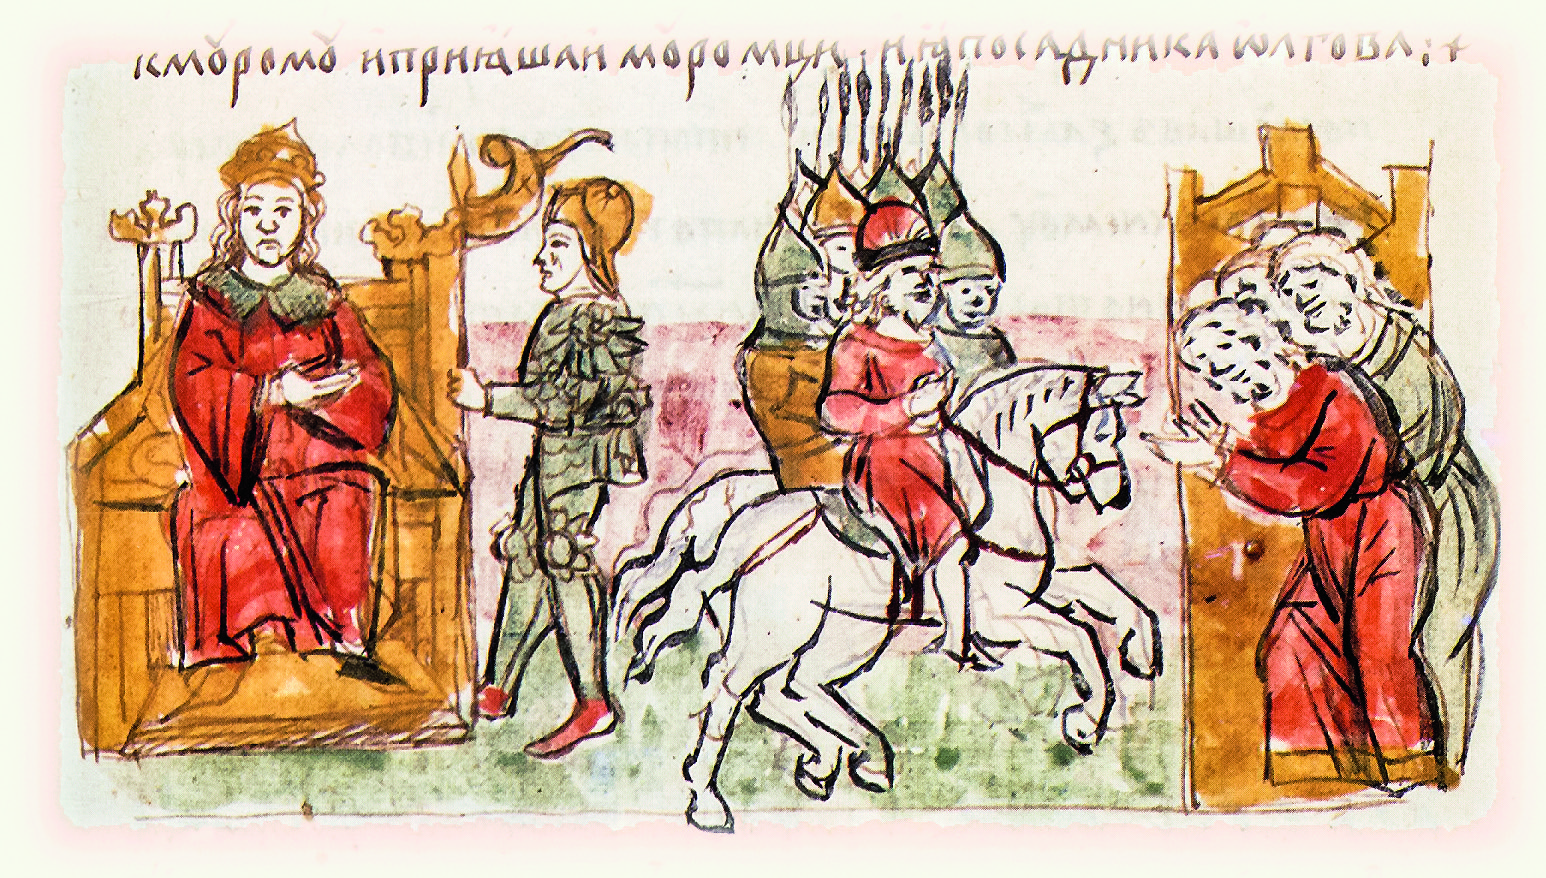 кмꙋромꙋ иприꙗшаи мꙋромци · и ꙗпосадника ѡлгова :+